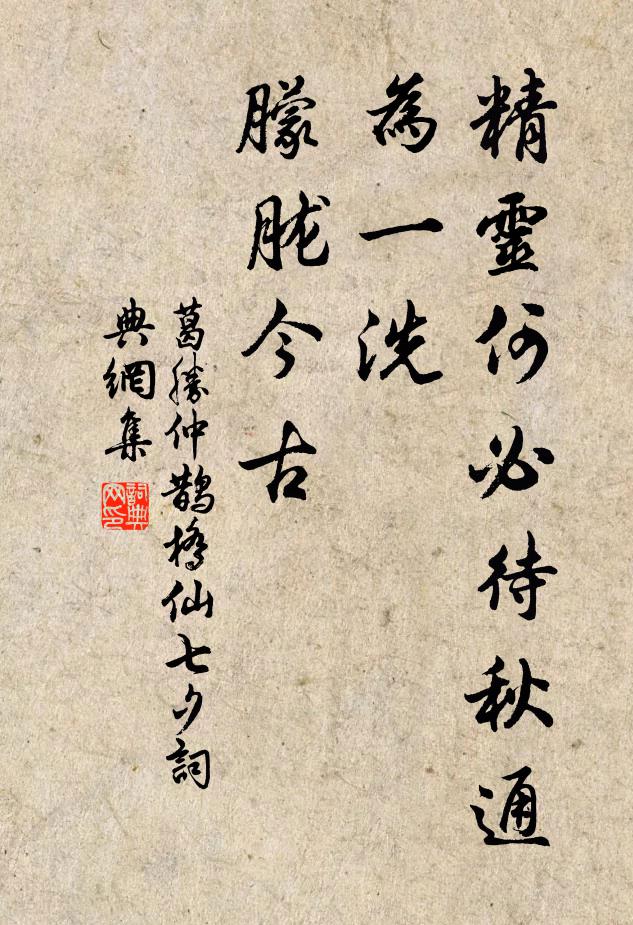 精靈何必待秋通
為一洗
朦朧今古
葛勝仲鵲橋仙七夕詞
典網集
詞典
网印